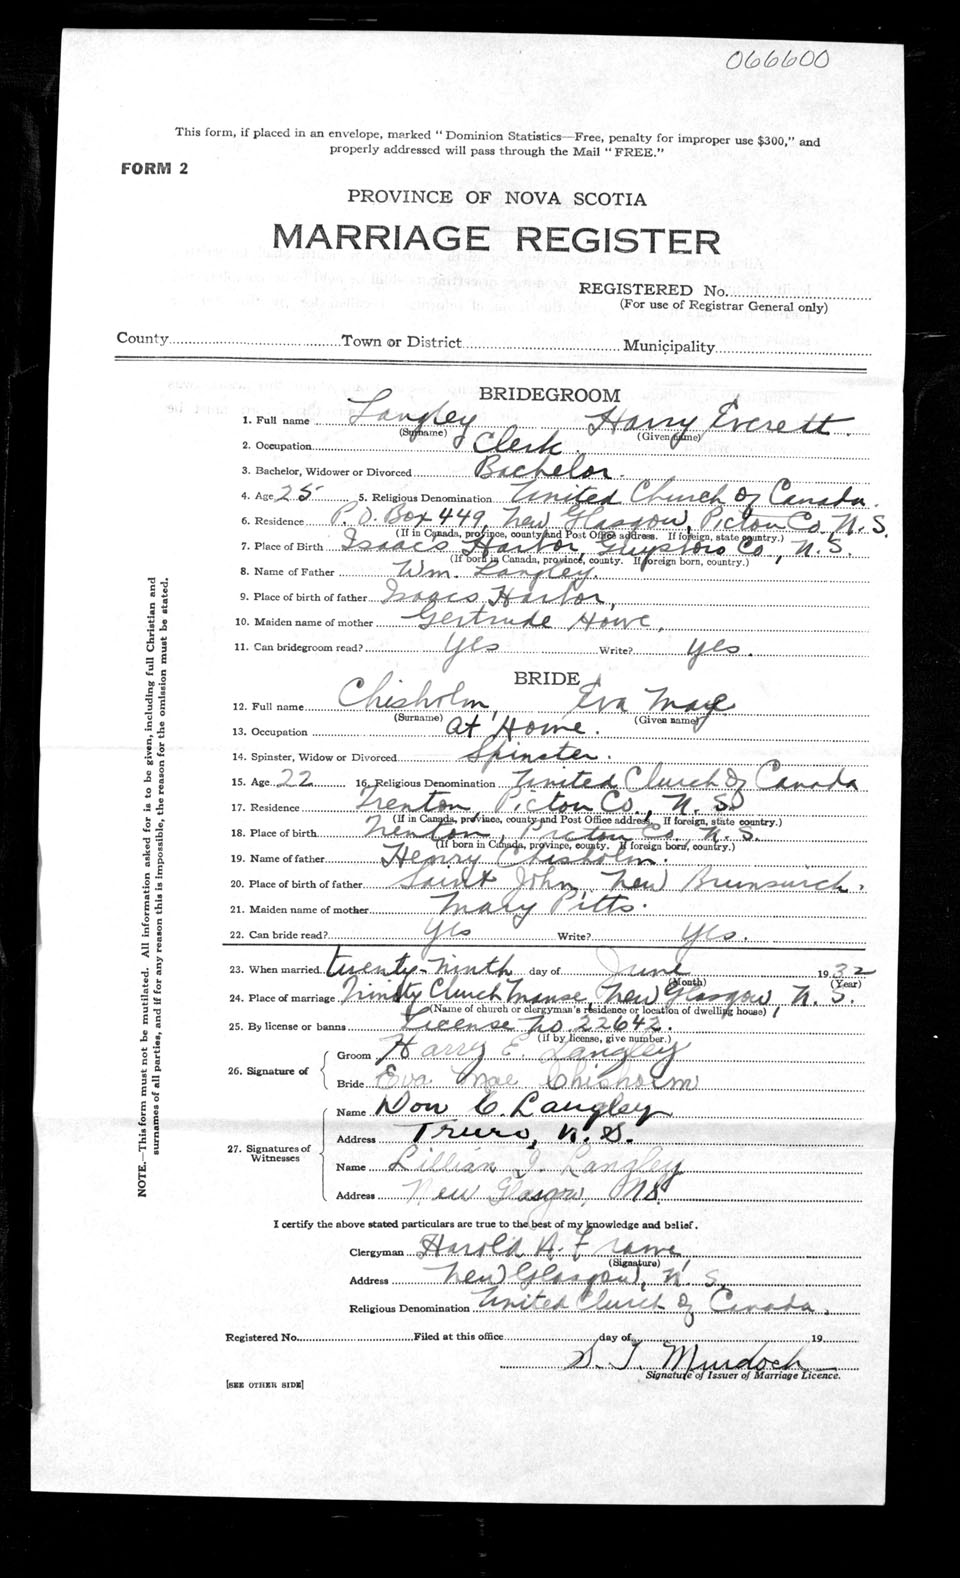 066600
This form, if placed in an envelope, marked "Dominion Statistics—Free, penalty for improper use $300," and
properly addressed will pass through the Mail "FREE."
FORM 2
PROVINCE OF NOVA SCOTIA
MARRIAGE REGISTER
REGISTERED No.
(For use of Registrar General only)
County Town or District Municipality
BRIDEGROOM
1. Full name Langley Harry Everett.
(Surname) (Given name)
2. Occupation Clerk.
3. Bachelor, Widower or Divorced Bachelor.
4. Age 25 5. Religious Denomination United Church of Canada.
6. Residence P.O. Box 449, New Glasgow, Pictou Co. N.S.
(If in Canada, province, county and Post Office address. If foreign, state country.)
7. Place of Birth Isaacs Harbor, Guysboro Co., N.S.
(If born in Canada, province, county. If foreign born, country.)
8. Name of Father Wm. Langley.
9. Place of birth of father Isaacs Harbor,
10. Maiden name of mother Gertrude Howe,
11. Can bridegroom read? Yes Write? Yes.
BRIDE
12. Full name Chisholm, Eva Mae
(Surname) (Given name)
13. Occupation At Home.
14. Spinster, Widow or Divorced Spinster.
15. Age 22 16. Religious Denomination United Church of Canada
17. Residence Trenton, Pictou Co., N.S.
(If in Canada, province, county and Post Office address. If foreign, state country.)
18. Place of birth Trenton, Pictou Co. N.S.
(If born in Canada, province, county. If foreign born, country.)
19. Name of father Henry Chisholm.
20. Place of birth of father Saint John, New Brunswick.
21. Maiden name of mother Mary Pitts.
22. Can bride read? Yes Write? Yes.
23. When married twenty-ninth day of June 1932
(Month) (Year)
24. Place of marriage Trinity Church Manse, New Glasgow, N.S.
(Name of church or clergyman's residence or location of dwelling house)
25. By license or banns License No. 22642.
(If by license, give number.)
26. Signature of Groom Harry E. Langley
Bride Eva Mae Chisholm
27. Signatures of Witnesses Name Don C. Langley
Address Truro, N.S.
Name Lillian J. Langley
Address New Glasgow, NS
I certify the above stated particulars are true to the best of my knowledge and belief.
Clergyman Harold A. Frame
(Signature)
Address New Glasgow, N.S.
Religious Denomination United Church of Canada.
Registered No. Filed at this office day of 19
S. T. Murdoch
Signature of Issuer of Marriage Licence.
[SEE OTHER SIDE]
NOTE.—This form must not be mutilated. All information asked for is to be given, including full Christian and
surnames of all parties, and if for any reason this is impossible, the reason for the omission must be stated.